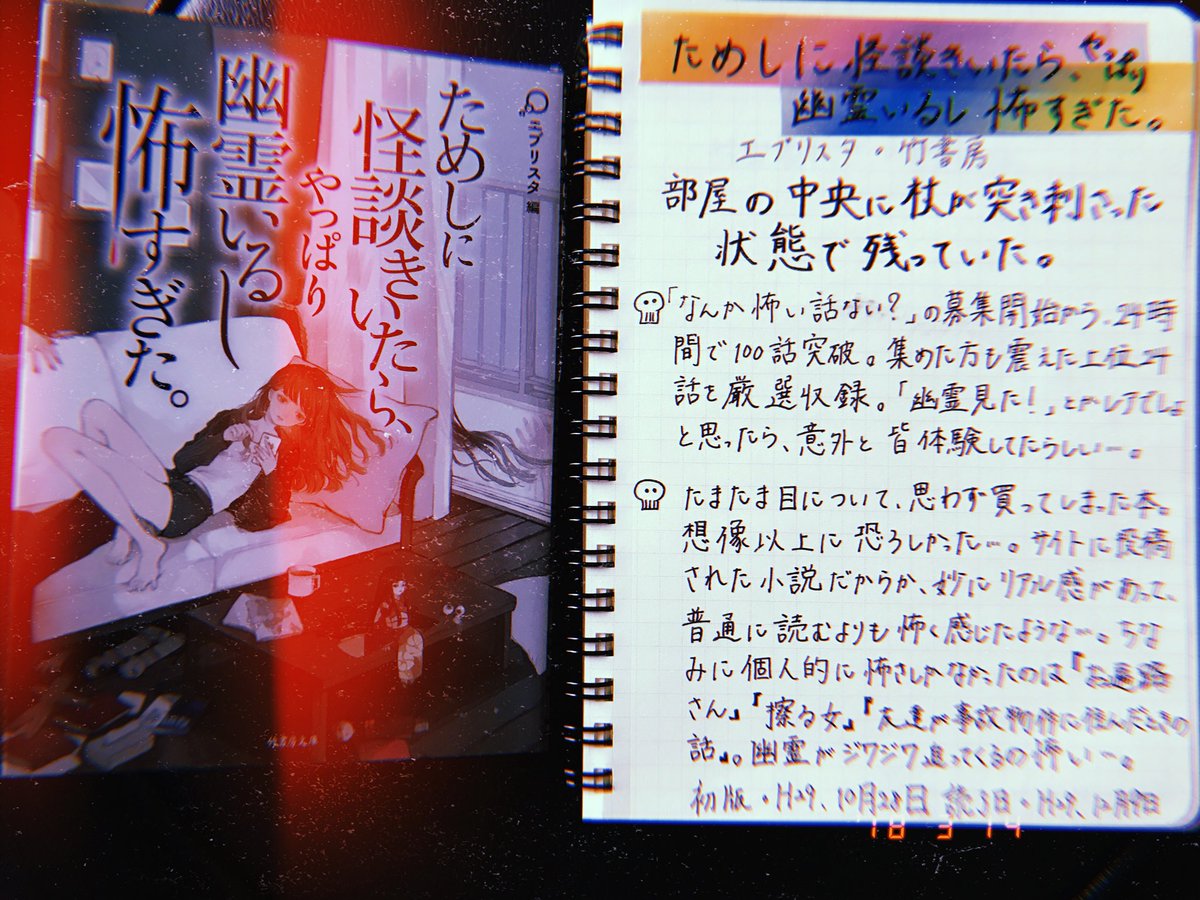 エブリスタ 編
ためしに
怪談きいたら、
やっぱり
幽霊いるし
怖すぎた。
竹書房文庫
ためしに怪談きいたら、やっぱり
幽霊いるし怖すぎた。
エブリスタ・竹書房
部屋の中央に杖が突き刺さった
状態で残っていた。
「なんか怖い話ない?」の募集開始から、24時
間で100話突破。集めた方も震えた上位24
話を厳選収録。「幽霊見た!」とかレアでしょ
と思ったら、意外と皆体験してたらしいー。
たまたま目について、思わず買ってしまった本。
想像以上に恐ろしかった…。サイトに投稿
された小説だからか、妙にリアル感があって、
普通に読むよりも怖く感じたような…。ちな
みに個人的に怖さしかなかったのは『お遍路
さん』『擦る女』『友達が事故物件に住んだときの
話』。幽霊がジワジワ迫ってくるの怖いー。
初版・H29、10月28日 読了日・H29、12月9日
'18 3 14